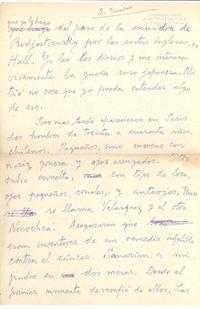 que yo lo hago
del paso de la escuadra de
por las costas inglesas,
Hall. Yo leo los diarios y me
vivamente la guerra ruso japonesa. Ni
creo que yo pueda entender algo
de eso.
Poco mas tarde aparecieron en Paris
dos hombres de treinta a cuarenta años,
chilenos. Pequeños, uno moreno con
nariz y ojos arrugados. Otro
rubio con tipo de loco,
ojos pequeños, y anteojos. Uno
se llama Velasquez y el otro
Necochea. Aseguraron que
eran inventores de un remedio infalible
contra el cáncer. Sanarian a mi
padre en dos meses. Desde el
primer momento desconfié de ellos. Las